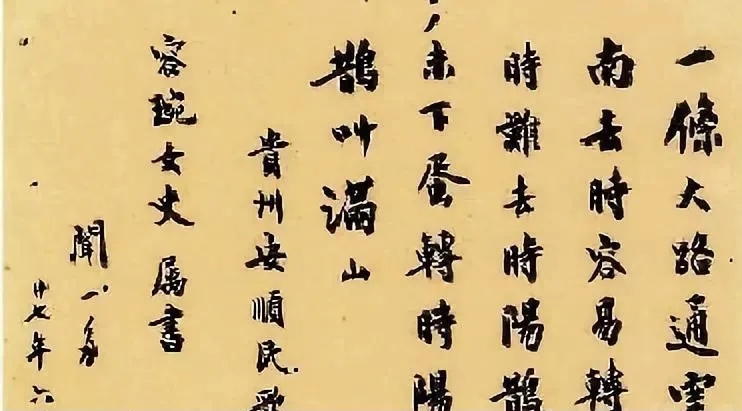 一條大路通雲
南去時容易轉
時難去時陽鵲
未下蛋轉時陽
鵲叫滿山
貴州安順民歌
容琬女史属書
聞一多
廿七年六